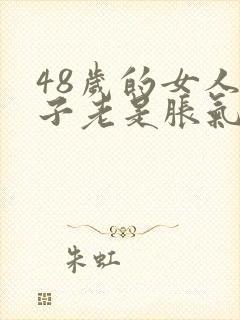 48歲的女人
子老是脹氣
朱虹